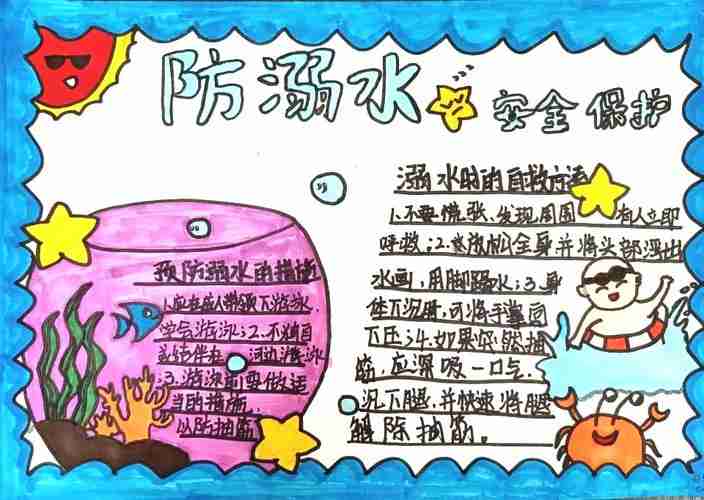 防溺水
安全保护
溺水时的自救方法
1.不要慌张、发现周围 有人立即
呼救;2.放松全身并将头部浮出
水面,用脚踢水;3.身
体下沉时,可将手掌向
下压;4.如果突然抽
筋,应深吸一口气
沉下腿,并快速将腿
解除抽筋。
预防溺水的措施
1.应在成人带领下游泳,
学会游泳;2.不独自
结伴在 河边游泳
;3.游泳前要做适
当的措施,
以防抽筋